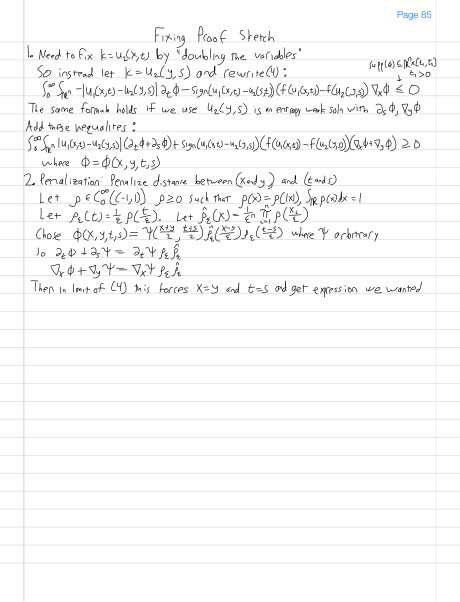 Page 85
Fixing Proof Sketch
1. Need to fix k=u₂(x,t) by "doubling the variables"
So instead let k=u₂(y,s) and rewrite (4):
∫₀^∞∫_ℝⁿ -|u₁(x,t)-u₂(y,s)|∂ₜϕ - sign(u₁(x,t)-u₂(y,s))(f(u₁(x,t))-f(u₂(y,s))∇ₓϕ ≤ 0
The same formula holds if we use u₂(y,s) is an entropy weak soln with ∂ₛϕ, ∇_yϕ
Add these inequalites:
∫₀^∞∫_ℝⁿ |u₁(x,t)-u₂(y,s)|(∂ₜϕ+∂ₛϕ)+sign(u₁(x,t)-u₂(y,s))(f(u₁(x,t))-f(u₂(y,s))(∇ₓϕ+∇_yϕ) ≥ 0
where ϕ=ϕ(x,y,t,s)
2. Penalization: Penalize distance between (x and y) and (t and s)
Let ρ∈C₀^∞((-1,1)) ρ≥0 such that ρ(x)=ρ(|x|), ∫_ℝ ρ(x)dx=1
Let ρ_ε(t)=1/ε ρ(t/ε). Let ρ̂_ε(x)=1/εⁿ ∏_{i=1}^n ρ(x_i/ε)
Chose ϕ(x,y,t,s)=Ψ(x+y/2, t+s/2)ρ̂_ε(x-y/ε)ρ_ε(t-s/ε) where Ψ arbitrary
So ∂ₜϕ+∂ₛΨ = ∂ₜΨ ρ_ε ρ̂_ε
∇ₓϕ+∇_yΨ = ∇ₓΨ ρ_ε ρ̂_ε
Then in limit of (4) this forces x=y and t=s and get expression we wanted